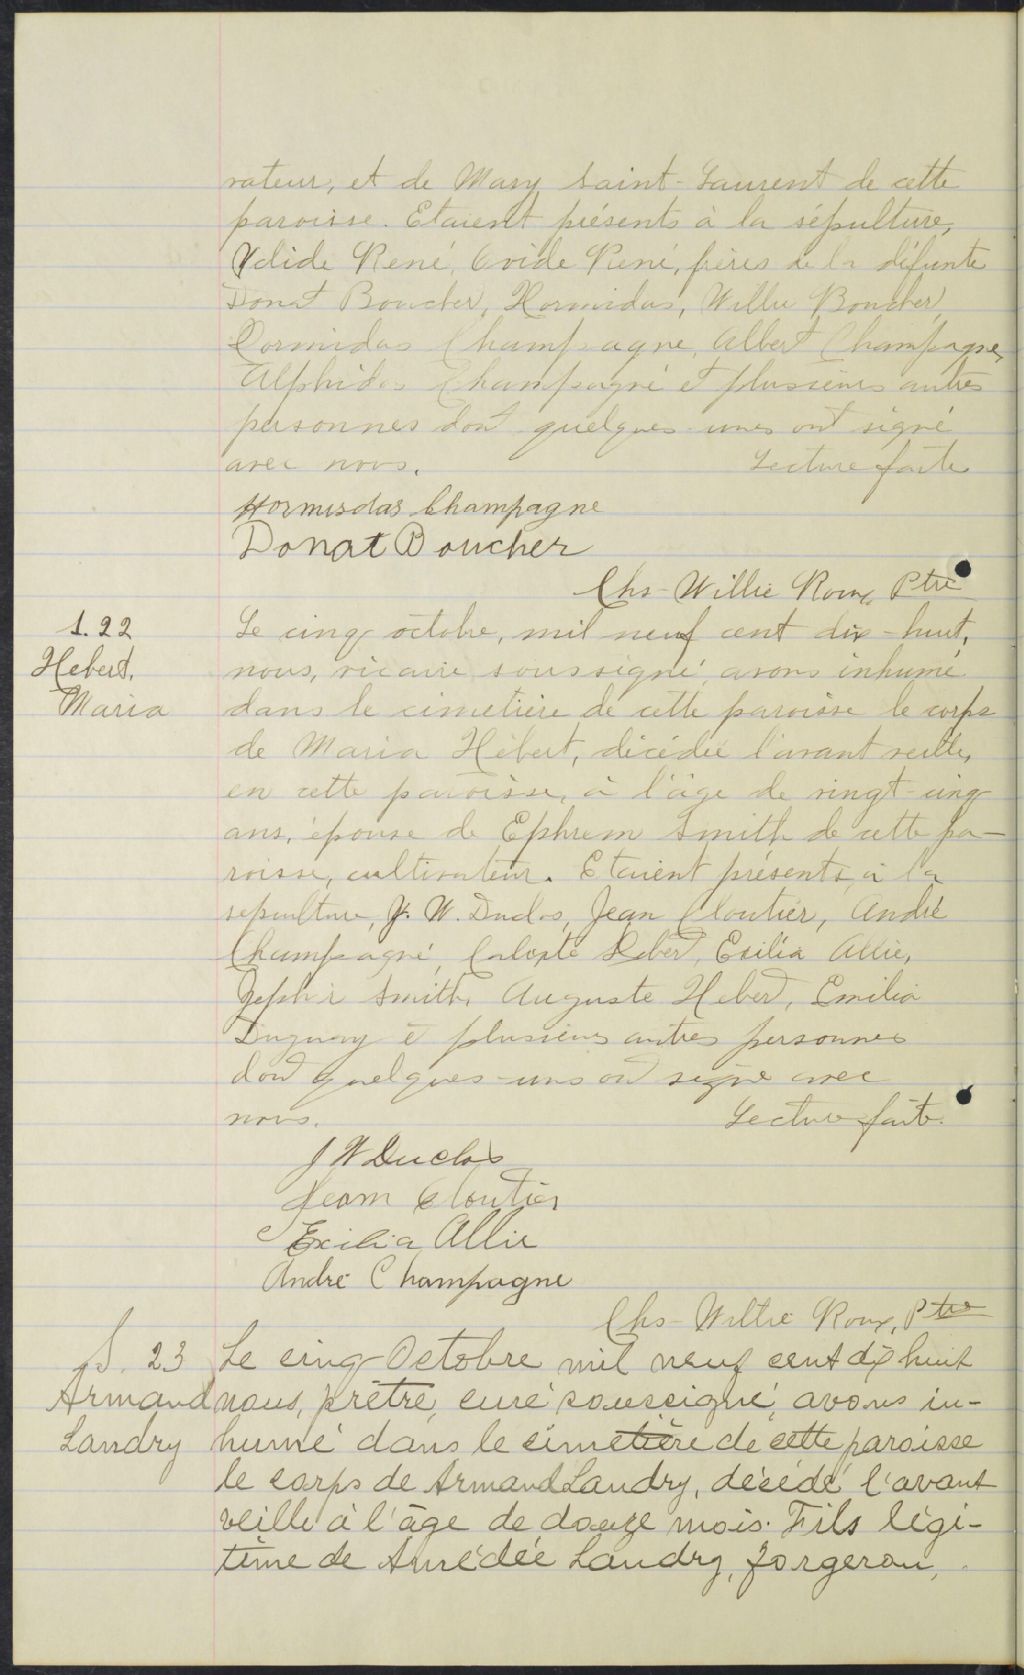 rateur, et de Mary Saint-Laurent de cette
paroisse. Etaient présents à la sépulture,
Ovide René, frères de la défunte
Donat Boucher, Hormidas, Willie Boucher,
Hormidas Champagne, Albert Champagne,
Alphidas Champagne et plusieurs autres
personnes dont quelques-unes ont signé
avec nous. Lecture faite
Hormisdas Champagne
Donat Boucher
Chs-Willie Roux, Ptre
S. 22
Hebert,
Maria
Le cinq octobre, mil neuf cent dix-huit,
nous, vicaire soussigné, avons inhumé
dans le cimetière de cette paroisse le corps
de Maria Hébert, décédée l'avant veille,
en cette paroisse, à l'âge de vingt-cinq
ans, épouse de Ephrem Smith de cette pa-
roisse, cultivateur. Etaient présents à la
sepulture, J. W. Duclos, Jean Cloutier, André
Champagne, Hebert, Exilia Allie,
Zephir Smith, Auguste Hebert, Emilia
Duguay et plusieurs autres personnes
dont quelques-uns ont signé avec
nous. Lecture faite.
J W Duclos
Jean Cloutier
Exilia Allie
André Champagne
Chs-Willie Roux, Ptre
S. 23
Armand
Landry
Le cinq Octobre mil neuf cent dix huit
nous, prêtre, curé soussigné, avons in-
humé dans le cimetière de cette paroisse
le corps de Armand Landry, décédé l'avant
veille à l'âge de douze mois. Fils légi-
time de Amédée Landry, forgeron,